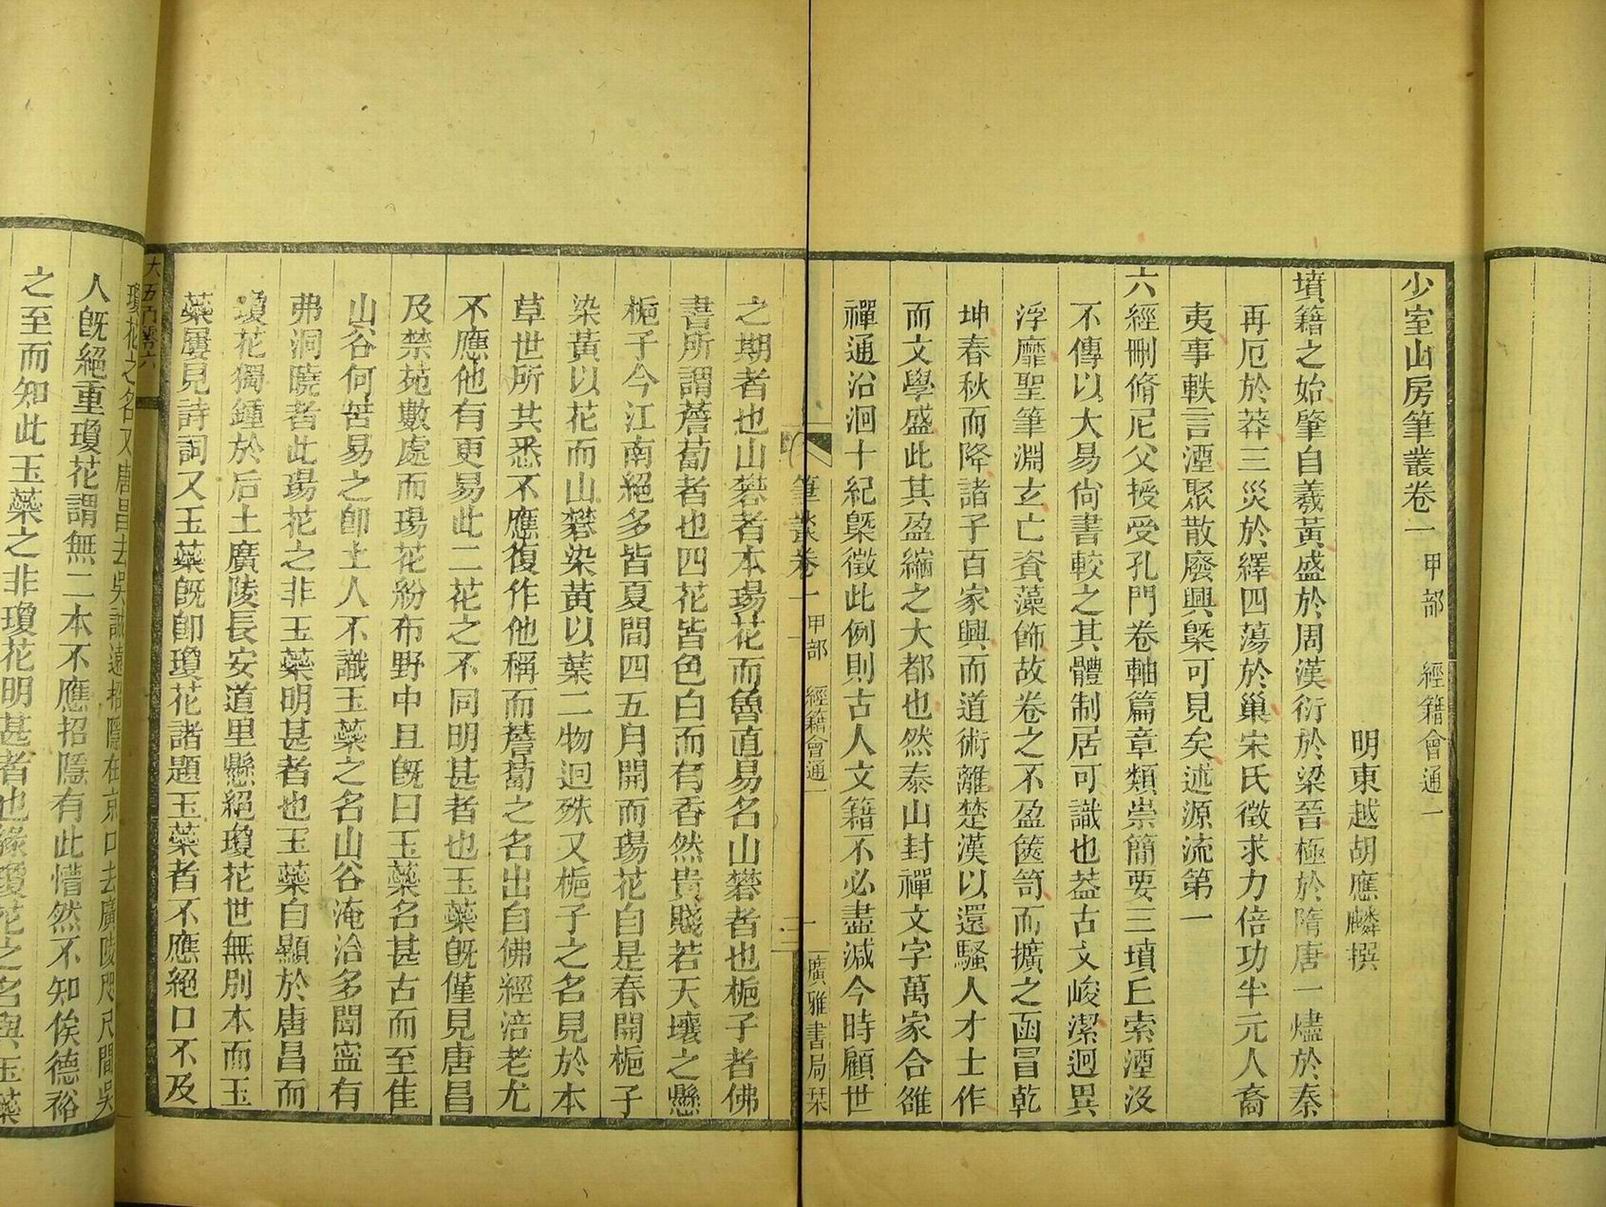 少室山房筆叢卷一 甲部 經籍會通一
明東越胡應麟撰
墳籍之始肇自羲黃盛於周漢衍於梁晉極於隋唐一燼於秦
再厄於莽三災於繹四蕩於巢宋氏徵求力倍功半元人裔
夷事軼言湮聚散廢興槩可見矣述源流第一
六經刪脩尼父授受孔門卷軸篇章類崇簡要三墳丘索湮沒
不傳以大易尙書較之其體制居可識也葢古文峻潔迥異
浮靡聖筆淵玄亡資藻飾故卷之不盈篋笥而擴之函冒乾
坤春秋而降諸子百家興而道術離楚漢以還騷人才士作
而文學盛此其盈縮之大都也然泰山封禪文字萬家合雒
禪通沿洄十紀槩徵此例則古人文籍不必盡減今時顧世
筆叢卷一 甲部 經籍會通一 一 廣雅書局栞
之期者也山礬者本瑒花而魯直易名山礬者也梔子者佛
書所謂薝蔔者也四花皆色白而有香然貴賤若天壤之懸
梔子今江南絕多皆夏間四五月開而瑒花自是春開梔子
染黃以花而山礬染黃以葉二物迥殊又梔子之名見於本
草世所共悉不應復作他稱而薝蔔之名出自佛經涪老尤
不應他有更易此二花之不同明甚者也玉蘂旣僅見唐昌
及禁苑數處而瑒花紛布野中且旣曰玉蘂名甚古而至隹
山谷何苦易之卽土人不識玉蘂之名山谷淹洽多聞寍有
弗洞曉者此瑒花之非玉蘂明甚者也玉蘂自顯於唐昌而
瓊花獨鍾於后土廣陵長安道里懸絕瓊花世無別本而玉
蘂屢見詩詞又玉蘂旣卽瓊花諸題玉蘂者不應絕口不及
瓊花之名又唐昌去吳誠遠招隱在京口去廣陵咫尺間吳
人旣絕重瓊花謂無二本不應招隱有此懵然不知俟德裕
之至而知此玉蘂之非瓊花明甚者也緣瓊花之名與玉蘂